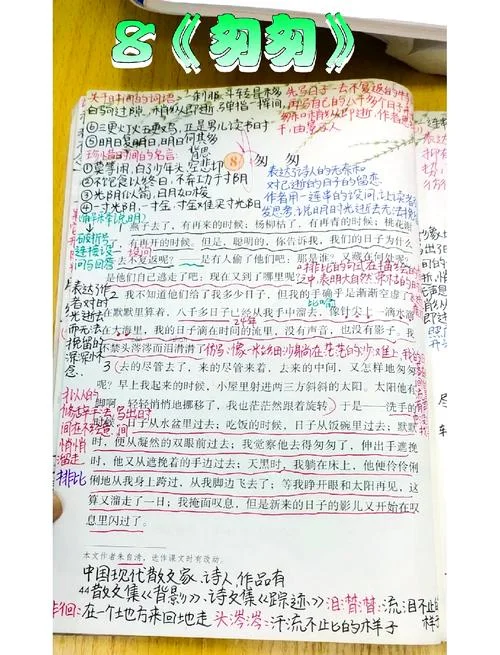 8《匆匆》
关于时间的词语：一刹那、斗转星移
白驹过隙、稍纵即逝、弹指一挥间
先写日子一去不复返的
再写自己的八千多个日子
匆和稍纵即逝，作者
⑥三更灯火五更鸡，正是男儿读书时
⑤明日复明日，明日何其多
珍惜时间的名言：
①莫等闲，白了少年头，空悲切
②不饱食以终日，不弃功于寸阴
③光阴似箭，日月如梭
④一寸光阴一寸金，寸金难买寸光阴
8 匆匆
表达诗人的无奈和
对已逝的日子的留恋
作者用一连串的设问，让读者
燕子去了，有再来的时候；杨柳枯了，有再青的时候；桃花谢
了，有再开的时候。但是，聪明的，你告诉我，我们的日子为什么
一去不复返呢？——是有人偷了他们吧：那是谁？又藏在何处呢？
是他们自己逃走了吧：现在又到了哪里呢？
破折号
连接设
问与回答
2 我不知道他们给了我多少日子，但我的手确乎是渐渐空虚了。
在默默里算着，八千多日子已经从我手中溜去，像针尖上一滴水滴
在大海里，我的日子滴在时间的流里，没有声音，也没有影子。我
不禁头涔涔而泪潸潸了
表达作
者对时
光逝去
而无法
挽留的
3 去的尽管去了，来的尽管来着，去来的中间，又怎样地匆匆
呢？早上我起来的时候，小屋里射进两三方斜斜的太阳。太阳他有
脚啊，轻轻悄悄地挪移了，我也茫茫然跟着旋转。于是——洗手的
时候，日子从水盆里过去；吃饭的时候，日子从饭碗里过去；默默
时，便从凝然的双眼前过去；我觉察他去得匆匆了，伸出手遮挽
时，他又从遮挽着的手边过去；天黑时，我躺在床上，他便伶伶俐
俐地从我身上跨过，从我脚边飞去了；等我睁开眼和太阳再见，这
算又溜走了一日；我掩面叹息，但是新来的日子的影儿又开始在叹
息里闪过了。
悄悄
溜走
排比
本文作者朱自清，选作课文时有改动。
中国现代散文家、诗人，作品有
散文集《背影》、诗文集《踪迹》
泪潸潸：流泪不止的
样子
徘徊：在一个地方来回地走
头涔涔：汗流不止的样子